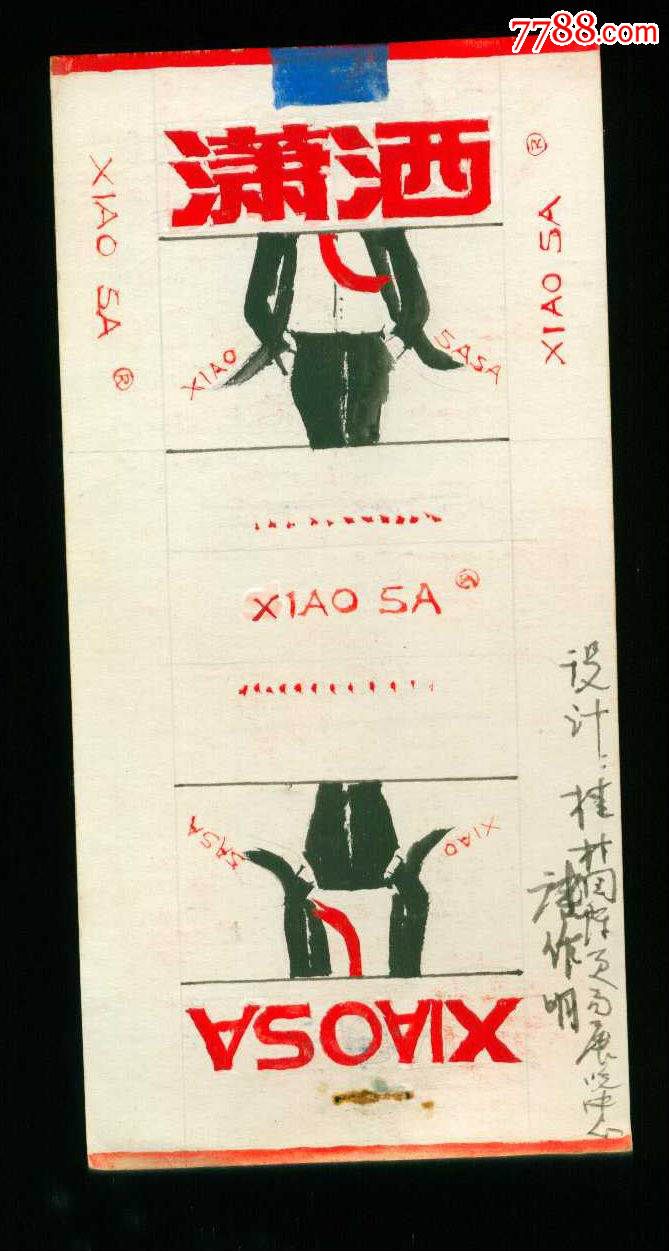 7788.com
潇洒
XIAO SA ®
XIAO SA ®
XIAO
SASA
XIAO SA ®
SASA
XIAO
XIAOSA
设计:桂林
展览中心
作明